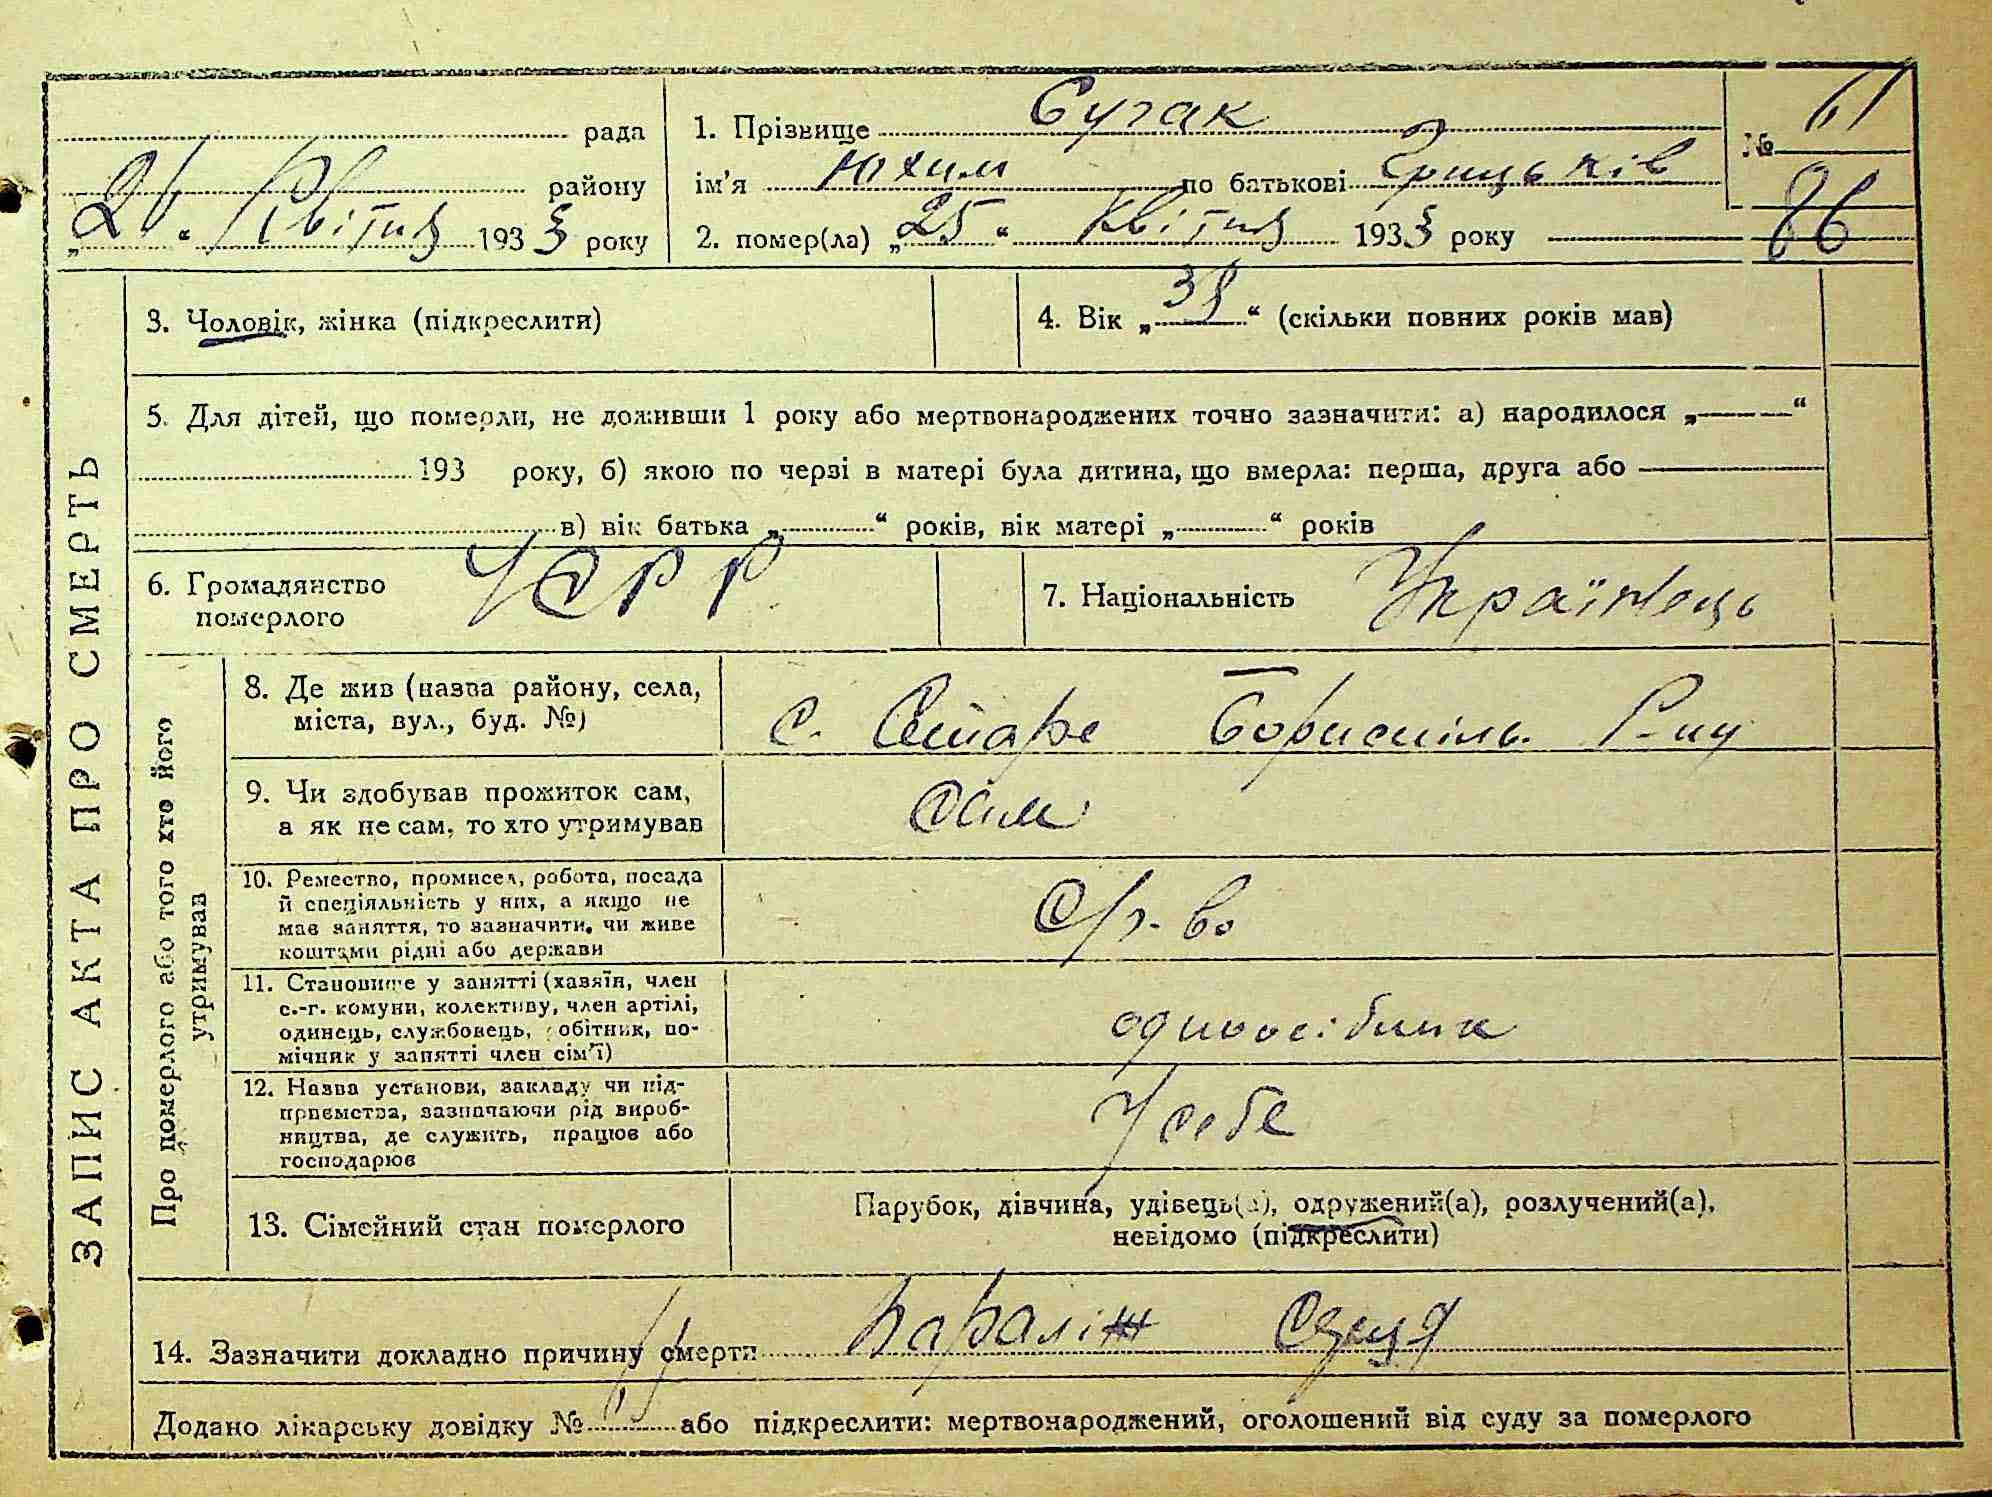 ЗАПИС АКТА ПРО СМЕРТЬ
рада
району
„26“ Квітня 1933 року
1. Прізвище Сугак
ім’я Юхим по батькові Грицьків
2. помер(ла) „25“ Квітня 1933 року
№ 61
86
3. Чоловік, жінка (підкреслити)
4. Вік „38“ (скільки повних років мав)
5. Для дітей, що померли, не доживши 1 року або мертвонароджених точно зазначити: а) народилося „——“
193 року, б) якою по черзі в матері була дитина, що вмерла: перша, друга або
в) вік батька „——“ років, вік матері „——“ років
6. Громадянство
померлого
УСРР
7. Національність Українець
Про померлого або того хто його
утримував
8. Де жив (назва району, села,
міста, вул., буд. №)
с. Старе Бориспіль. Р-ну
9. Чи здобував прожиток сам,
а як не сам, то хто утримував
Сам
10. Ремество, промисел, робота, посада
й спеціяльність у них, а якщо не
має заняття, то зазначити, чи живе
коштами рідні або держави
С/г-во
11. Становище у занятті (хазяїн, член
с.-г. комуни, колективу, член артілі,
одинець, службовець, робітник, по-
мічник у занятті член сім’ї)
одноосібник
12. Назва установи, закладу чи під-
приємства, зазначаючи рід вироб-
ництва, де служить, працює або
господарює
У себе
13. Сімейний стан померлого
Парубок, дівчина, удівець(а), одружений(а), розлучений(а),
невідомо (підкреслити)
14. Зазначити докладно причину смерти Параліж Сэрця
Додано лікарську довідку № або підкреслити: мертвонароджений, оголошений від суду за померлого